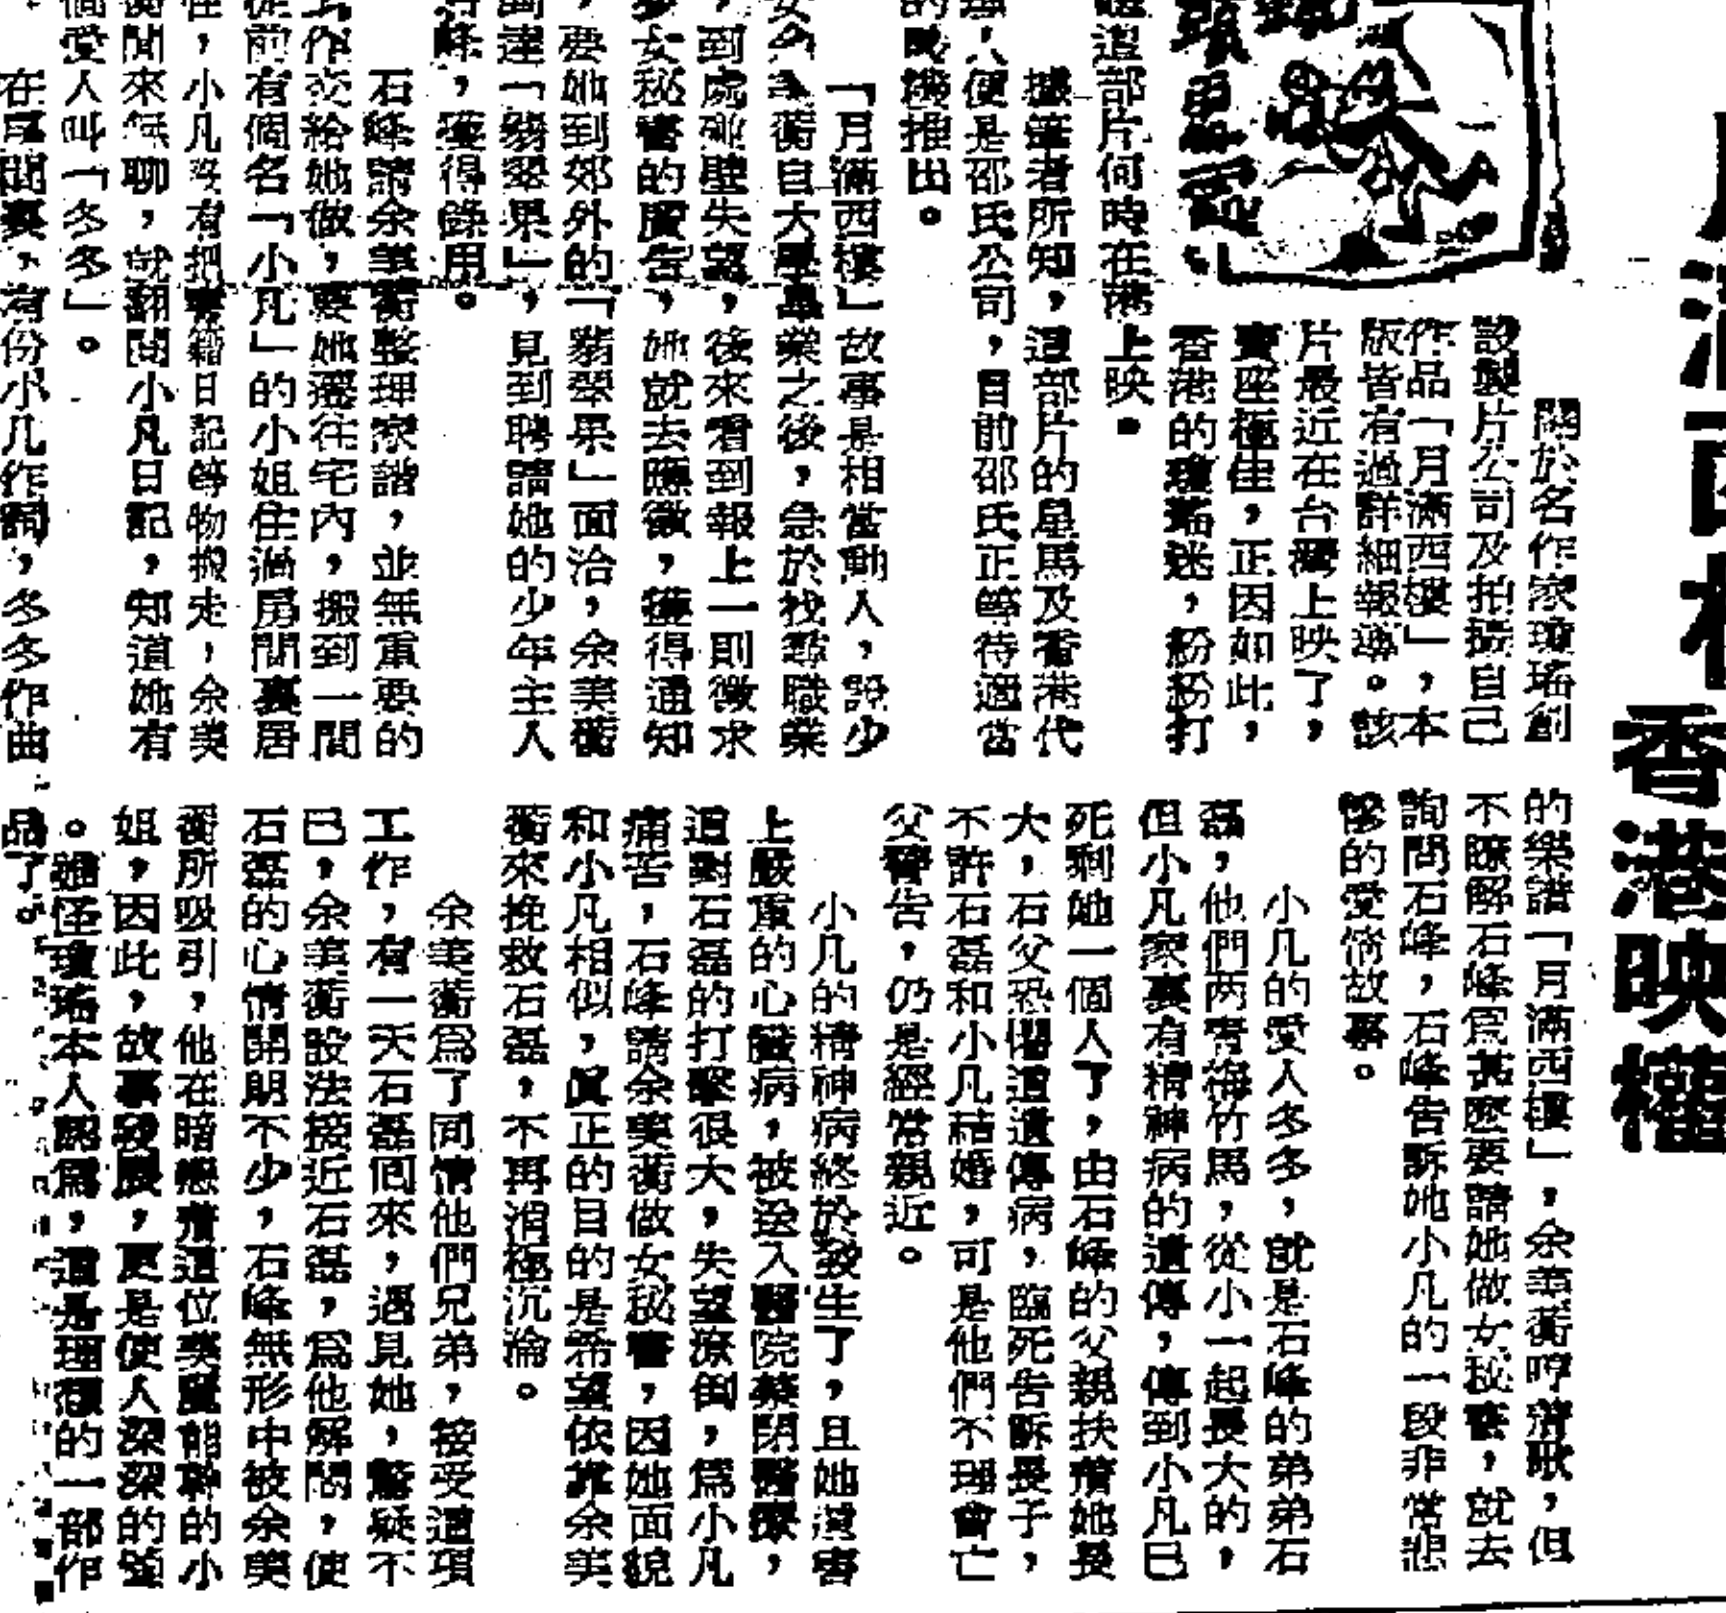 香港映權
關於名作家瓊瑤創
設製片公司及拍攝自己
作品「月滿西樓」,本
版皆有過詳細報導。該
片最近在台灣上映了,
賣座極佳,正因如此,
香港的瓊瑤迷,紛紛打
這部片何時在港上映。
據筆者所知,這部片的星馬及香港代
,便是邵氏公司,目前邵氏正等待適當
的 推出。
「月滿西樓」故事是相當動人,說少
女余美蘅自大學畢業之後,急於找尋職業
,到處碰壁失望,後來看到報上一則徵求
女秘書的廣告,她就去應徵,獲得通知
,要她到郊外的「翡翠巢」面洽,余美蘅
到達「翡翠巢」,見到聘請她的少年主人
石峰,獲得錄用。
石峰請余美蘅整理家譜,並無重要的
工作交給她做,要她遷往宅內,搬到一間
從前有個名「小凡」的小姐住過房間裏居
住,小凡沒有把書籍日記等物搬走,余美
蘅閒來無聊,就翻閱小凡日記,知道她有
個愛人叫「冬冬」。
在房間裏,有份小凡作詞,冬冬作曲
的樂譜「月滿西樓」,余美蘅哼着歌,但
不瞭解石峰爲甚麼要請她做女秘書,就去
詢問石峰,石峰告訴她小凡的一段非常悲
慘的愛情故事。
小凡的愛人冬冬,就是石峰的弟弟石
磊,他們两青梅竹馬,從小一起長大的,
但小凡家裏有精神病的遺傳,傳到小凡已
死剩她一個人了,由石峰的父親扶養她長
大,石父恐懼這遺傳病,臨死告訴長子,
不許石磊和小凡結婚,可是他們不理會亡
父警告,仍是經常親近。
小凡的精神病終於發生了,且她還害
上嚴重的心臟病,被送入醫院禁閉醫療,
這對石磊的打擊很大,失望潦倒,爲小凡
痛苦,石峰請余美蘅做女秘書,因她面貌
和小凡相似,眞正的目的是希望依靠余美
蘅來挽救石磊,不再消極沉淪。
余美蘅爲了同情他們兄弟,接受這項
工作,有一天石磊回來,遇見她,驚疑不
已,余美蘅設法接近石磊,爲他解悶,使
石磊的心情開朗不少,石峰無形中被余美
蘅所吸引,他在暗戀着這位美麗能幹的小
姐,因此,故事發展,更是使人深深的
。難怪瓊瑤本人認爲,這是理想的一部作
品了。